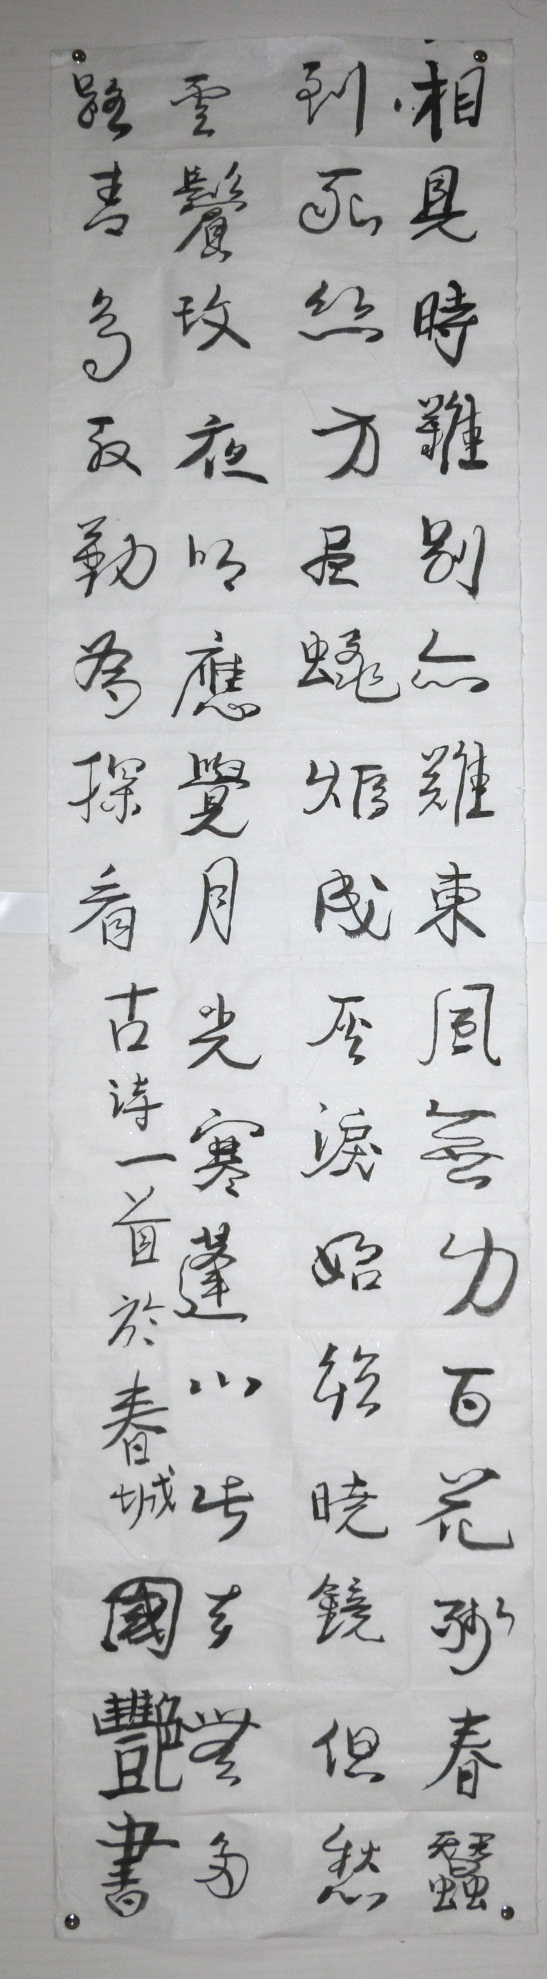 相見時難別亦難東風無力百花殘春蠶
到死絲方盡蠟炬成灰淚始乾曉鏡但愁
雲鬢改夜吟應覺月光寒蓬山此去無多
路青鳥殷勤為探看古诗一首於春城國艷書